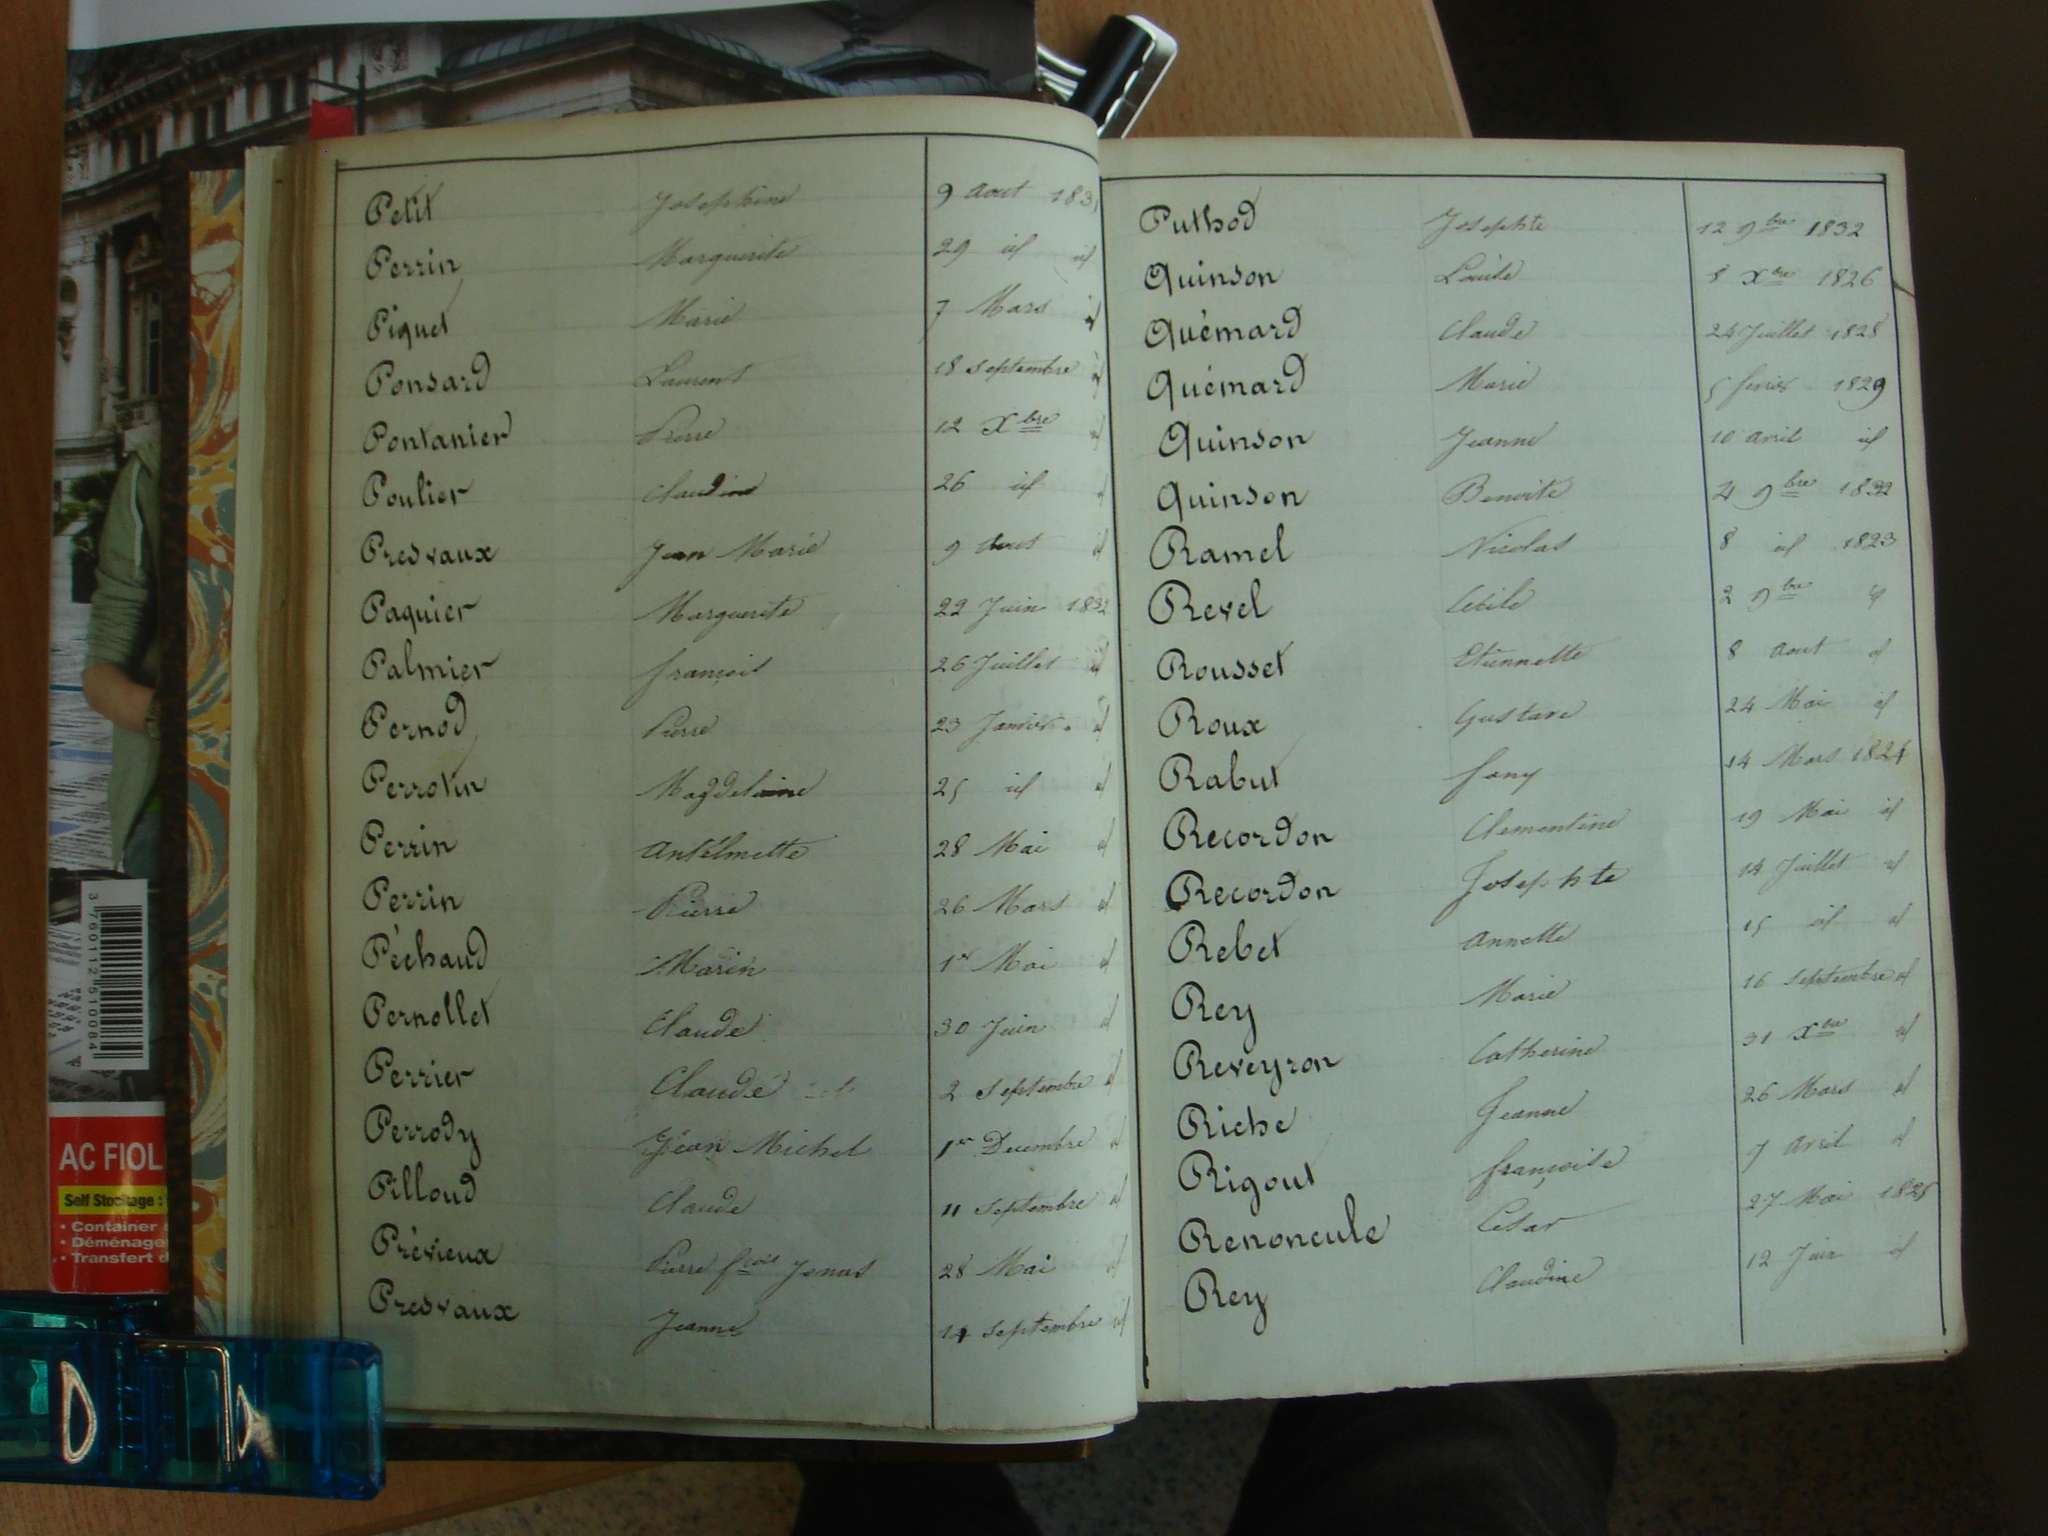 Petit Josephine 9 aout 1831
Perrin Marguerite 29 id id
Piquet Marie 7 Mars id
Ponsard Laurent 18 septembre id
Pontanier Pierre 12 Xbre id
Poulier Claudine 26 id id
Presvaux Jean Marie 9 Aout id
Paquier Marguerite 22 Juin 1832
Palmier françois 26 Juillet id
Pernod Pierre 23 Janvier id
Perrotin Magdelaine 25 id id
Perrin Antélmette 28 Mai id
Perrin Pierre 26 Mars id
Péchaud Marin 1er Mai id
Pernollet Claude 30 Juin id
Perrier Claude 2 septembre id
Perrody Jean Michel 1er Decembre id
Pilloud Claude 11 septembre id
Prévieux Pierre fçois Jonas 28 Mai id
Presvaux Jeanne 14 septembre id
Puthod Josephte 12 9bre 1832
Quinson Louise 8 Xbre 1826
Quémard Claude 24 Juillet 1828
Quémard Marie 5 fevier 1829
Quinson Jeanne 10 avril id
Quinson Benoite 4 9bre 1832
Ramel Nicolas 8 id 1823
Revel Cécile 2 9bre id
Rousset Etiennette 8 aout id
Roux Gustave 24 Mai id
Rabut fany 14 Mars 1824
Recordon Clementine 19 Mai id
Recordon Josephte 14 Juillet id
Rebet annette 15 id id
Rey Marie 16 septembre id
Reveyron Catherine 31 Xbre id
Riche Jeanne 26 Mars id
Rigout françoise 7 avril id
Renoncule César 27 Mai 1825
Rey Claudine 12 Juin id
3 760112 510084
AC FIOL
Self Stockage :
• Container
• Déménage
• Transfert d